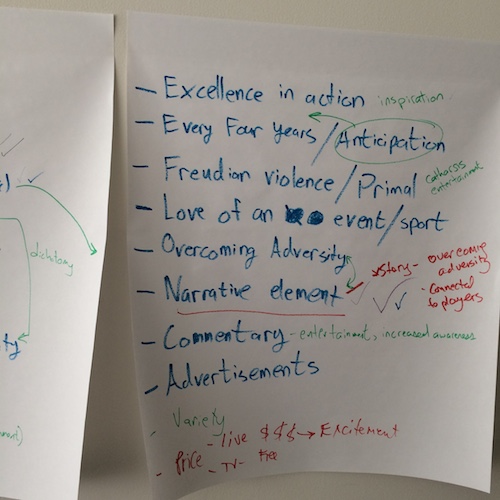 - Excellence in action inspiration
- Every Four Years / Anticipation
- Freudian violence / Primal catharsis entertainment
- Love of an event/sport
- Overcoming Adversity
- Narrative element
story - overcoming adversity
- connected to players
- Commentary - entertainment, increased awareness
- Advertisements
- Variety
- Price - live $$$ → Excitement
- TV - free
dichtomy
ty